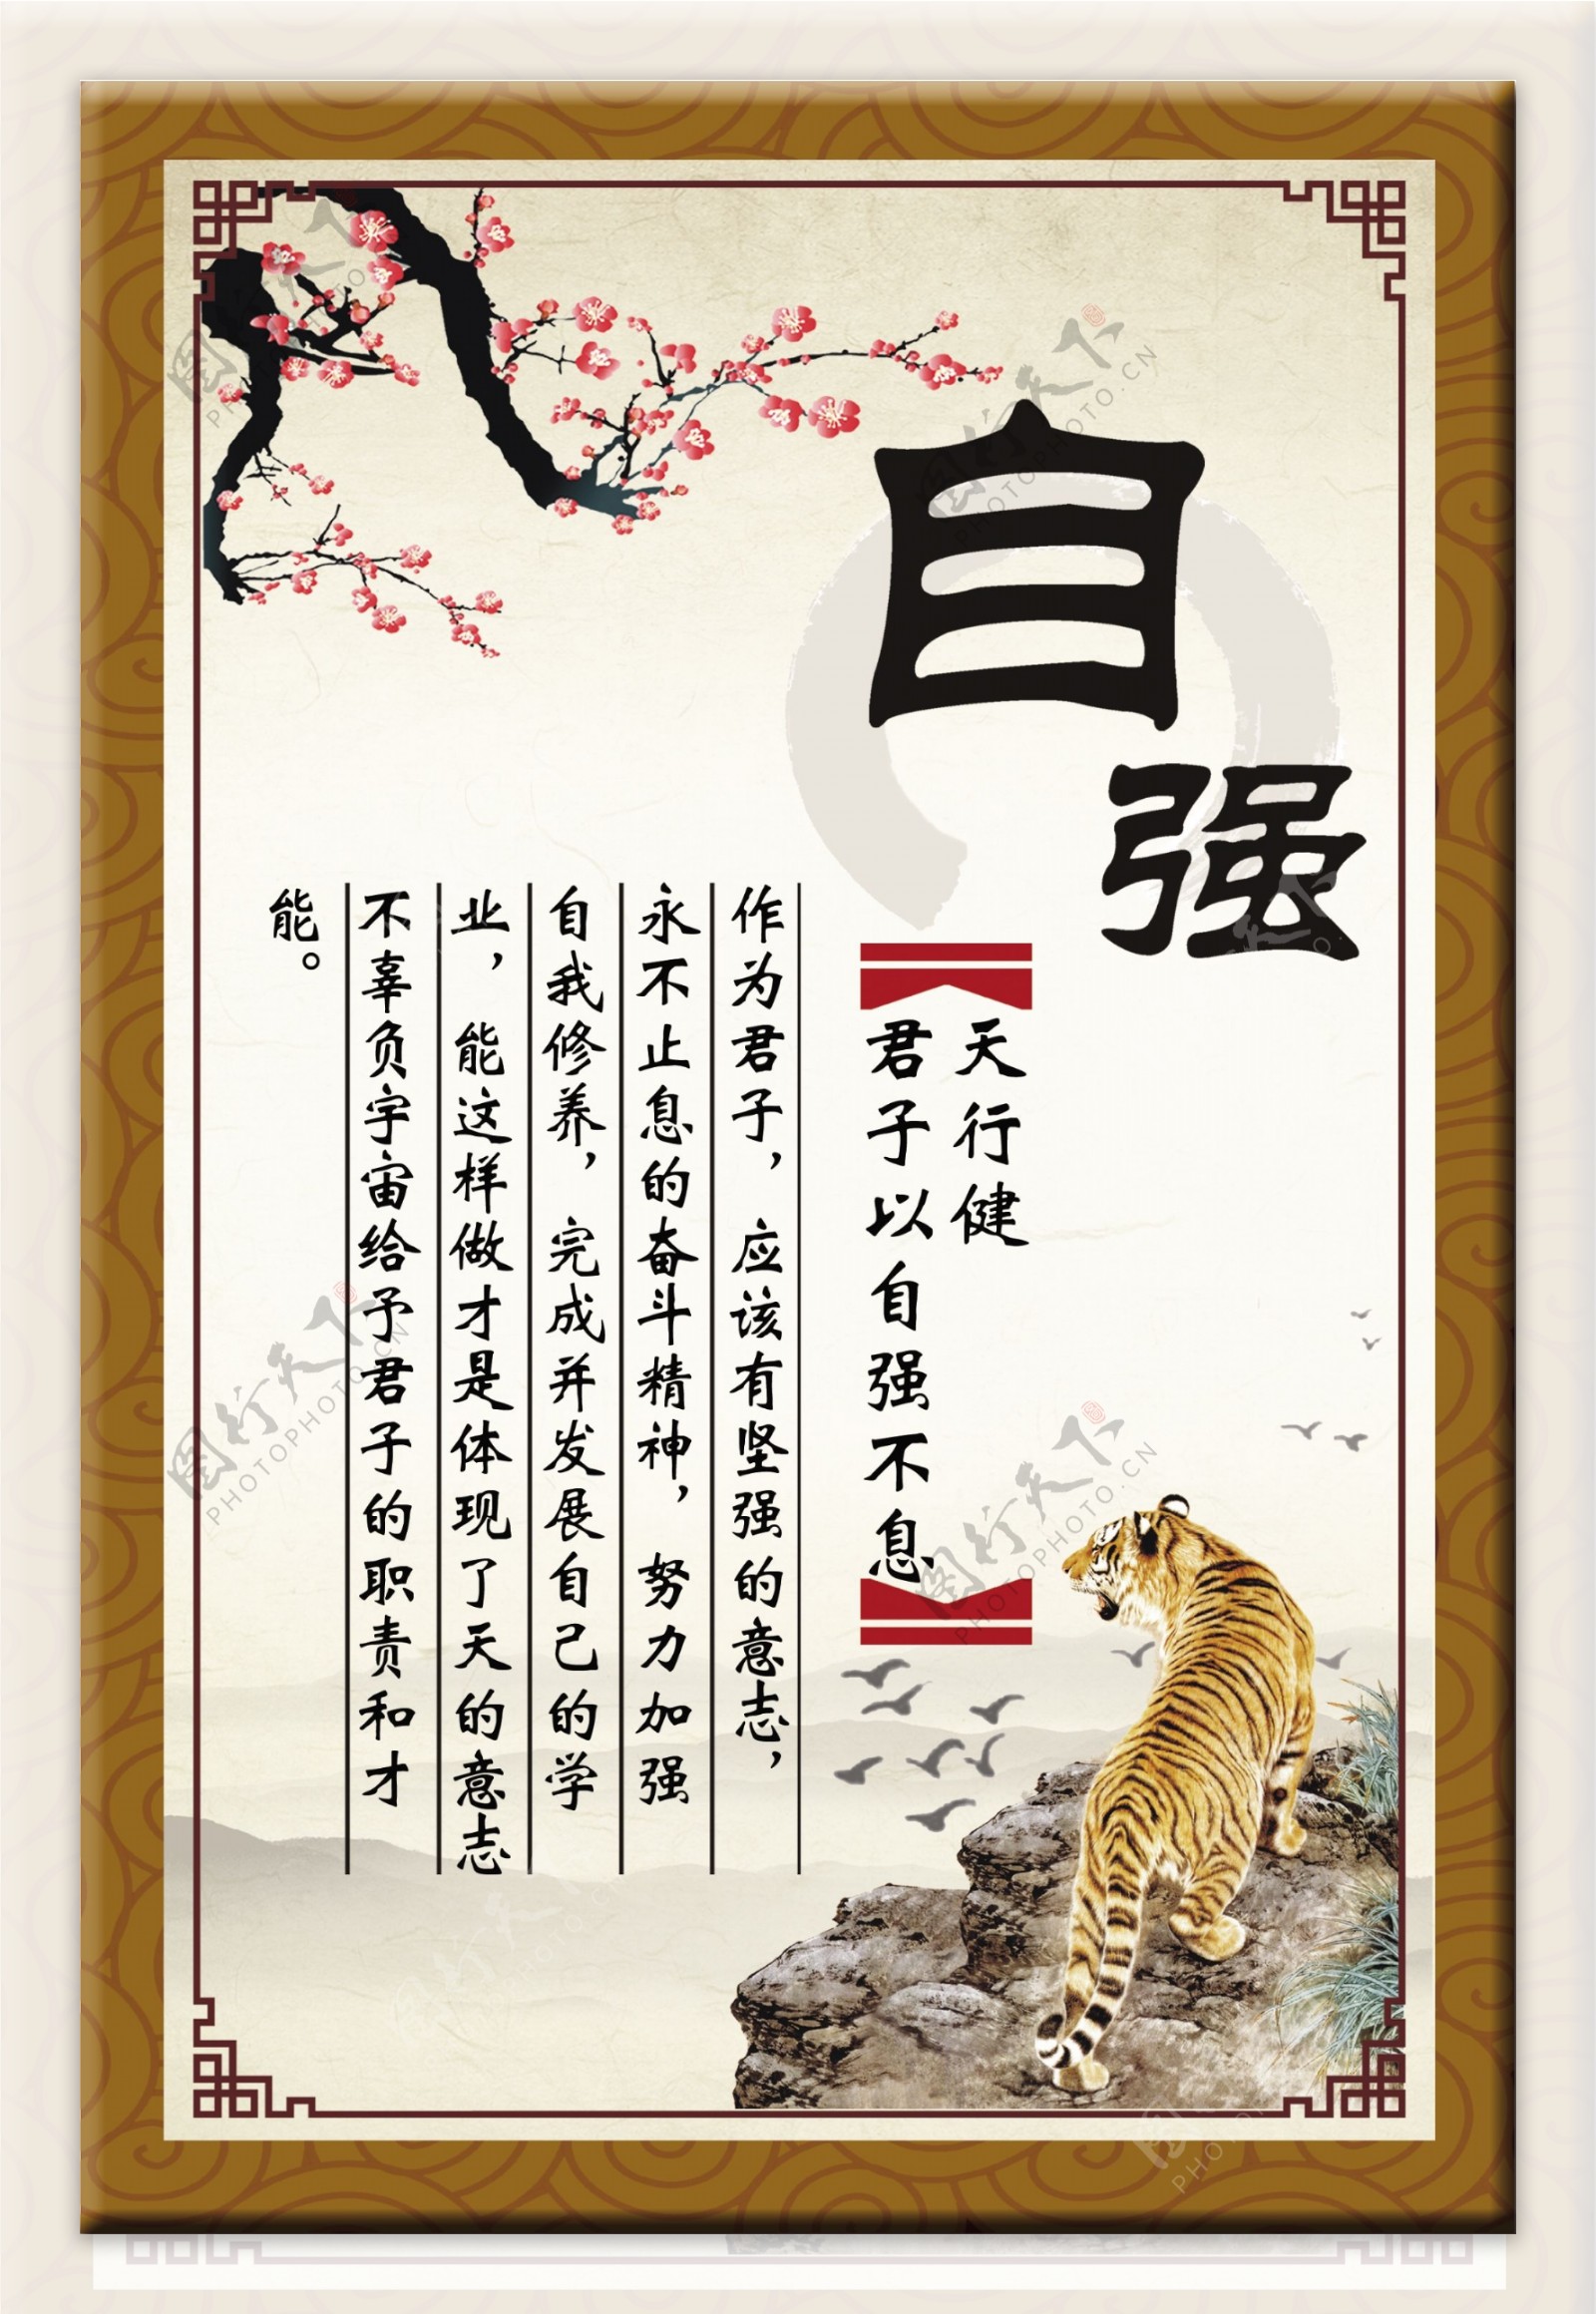 自
强
天行健
君子以自强不息
作为君子，应该有坚强的意志，
永不止息的奋斗精神，努力加强
自我修养，完成并发展自己的学
业，能这样做才是体现了天的意志
不辜负宇宙给予君子的职责和才
能。
图行天下
PHOTOPHOTO.CN
图行天下
PHOTOPHOTO.CN
图行天下
PHOTOPHOTO.CN
图行天下
PHOTOPHOTO.CN